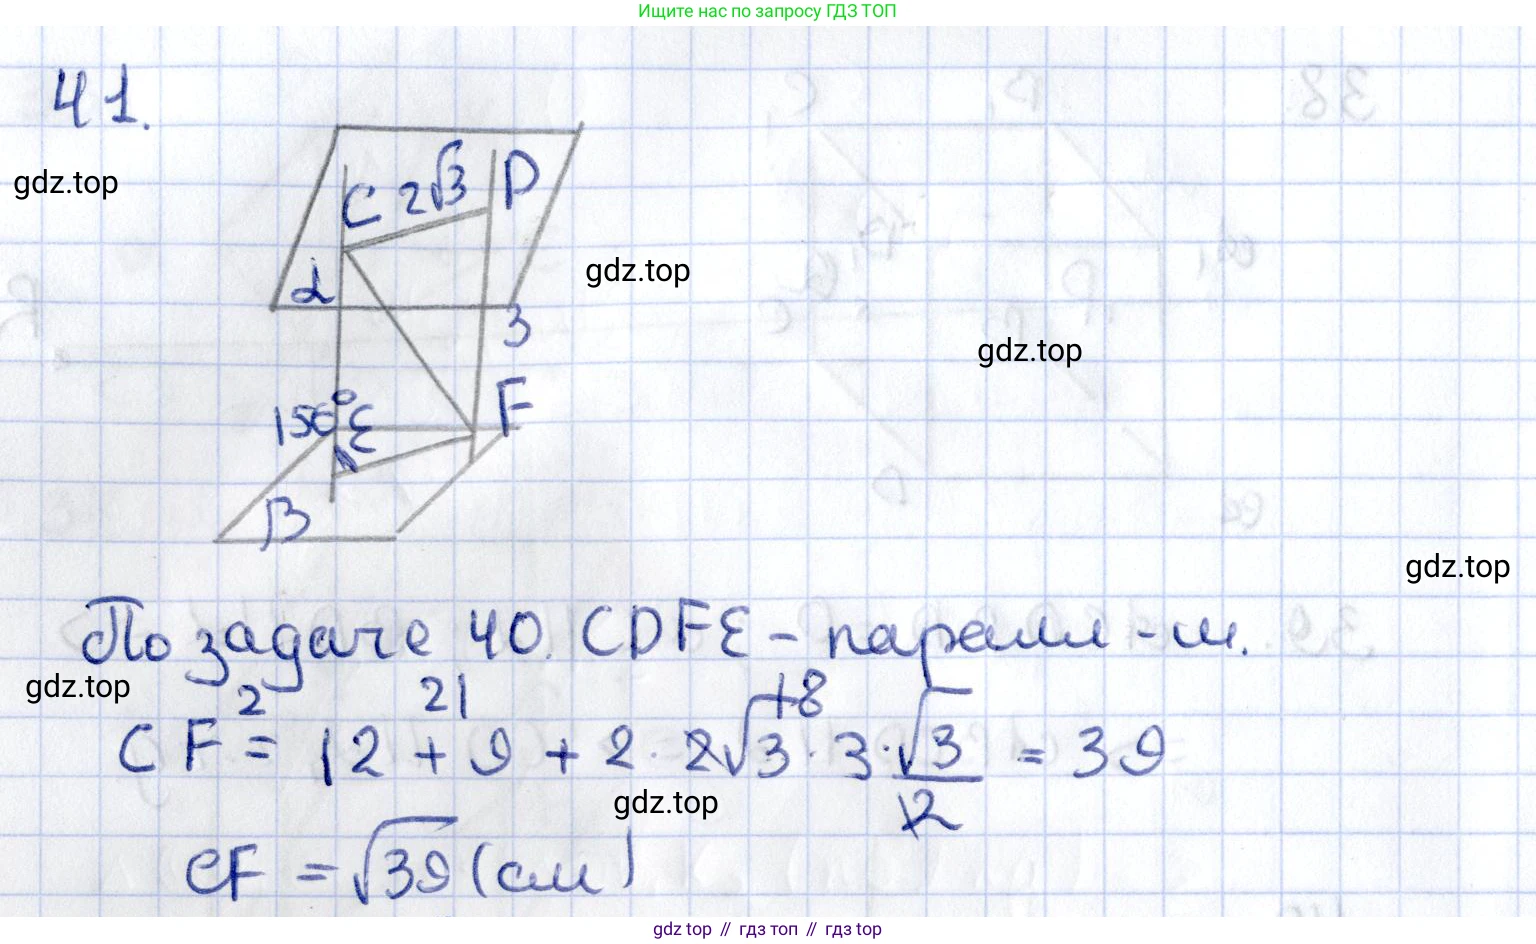 Ищите нас по запросу ГДЗ ТОП
41.
gdz.top
C 2√3 D
α
gdz.top
3
gdz.top
150° E F
β
gdz.top
По задаче 40. CDFE - паралл-м.
gdz.top
21 18
CF² = 12 + 9 + 2 · 2√3 · 3 · √3/2 = 39
gdz.top
CF = √39 (см)
gdz.top // гдз топ // гдз top